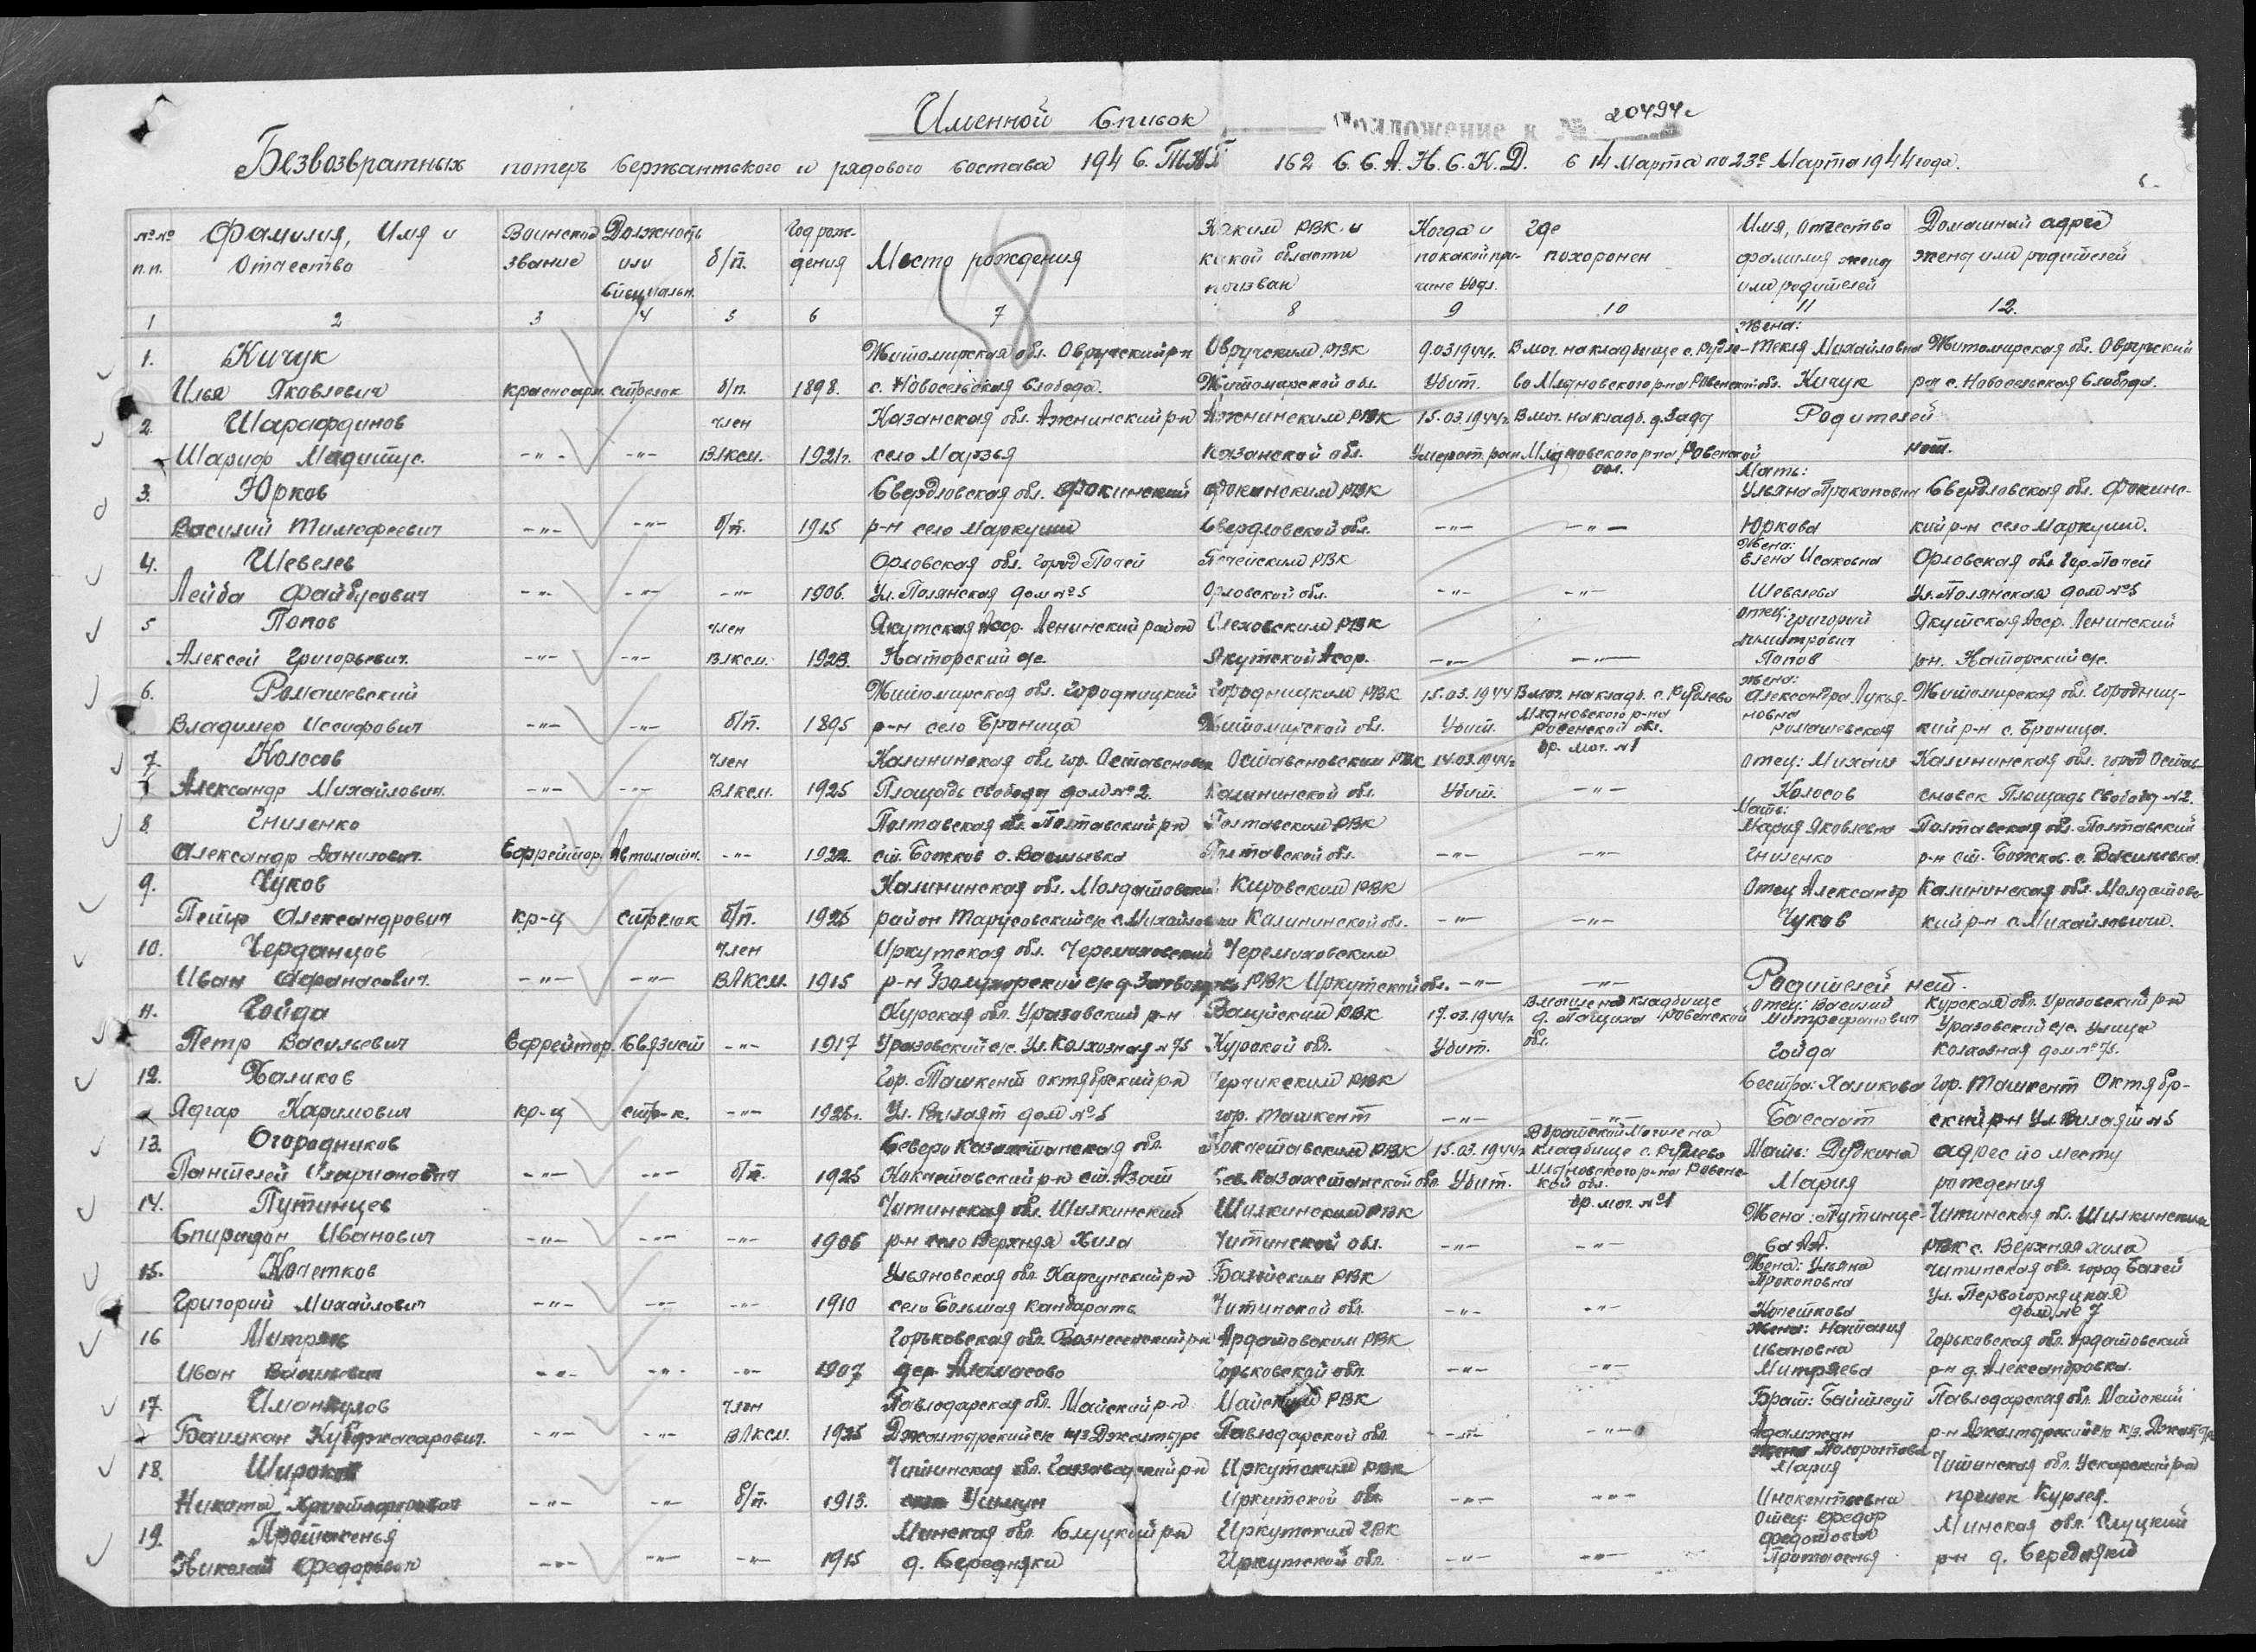 Именной Список
Приложение к № 20494с
Безвозвратных потерь Сержантского и рядового состава 194 С. 162 С.С.А.Н.С.К.Д. с 14 Марта по 23е Марта 1944 года.
№№ Фамилия, Имя и Воинское Должность Год рож- Каким РВК и Когда и Где Имя, Отчество Домашний адрес
п.п. Отчество звание или б/п. дения Место рождения какой области по какой при- похоронен фамилия жены жены или родителей
специальн. призван чине или родителей
1 2 3 4 5 6 7 8 9 10 11 12.
Жена:
1. Кичук Житомирская обл. Овручский р-н Овручским РВК 9.03.1944г. В мог. на кладбище с. Рудле- Текля Михайловна Житомирская обл. Овручский
Илья Яковлевич красноарм. стрелок б/п. 1898. с. Новосельская Слобода. Житомирской обл. Убит. во Млыновского р-на Ровенской обл. Кичук р-н с. Новосельская Слобода.
2. Шарафдинов член Казанская обл. р-н РВК 15.03.1944г. В мог. на кладб. д. Родителей
Шариф -"- -"- ВЛКСМ. 1921г. село Казанской обл. Умер от ран Млыновского р-на Ровенской нет.
обл. Мать:
3. Юрков Свердловская обл. Фокинский Фокинским РВК Ульяна Прокоповна Свердловская обл. Фокинс-
Василий Тимофеевич -"- -"- б/п. 1915 р-н село Маркуши Свердловской обл. -"- -"- Юркова кий р-н село Маркуши.
Жена:
4. Шевелев Орловская обл. город Почеп РВК Елена Исаковна Орловская обл. гор. Почеп
Лейба Файбусович -"- -"- -"- 1906. Ул. Полянская дом №5 Орловской обл. -"- -"- Шевелева Ул. Полянская дом №5
5 Попов член Якутская Асср. Ленинский район РВК Отец: Григорий Якутская Асср. Ленинский
Дмитрович
Алексей Григорьевич. -"- -"- ВЛКСМ. 1923. Наторский с/с. Якутской Асср. -"- -"- Попов р-н. Наторский с/с.
Жена:
6. Ромашевский Житомирская обл. Городницкий Городницким РВК 15.03.1944 В мог. на кладб. с. Рудлево Александра Лукья- Житомирская обл. Городниц-
Владимер Иссифович -"- -"- б/п. 1895 р-н село Броница Житомирской обл. Убит. Млыновского р-на Ровенской обл. новна Ромашевская кий р-н с. Броница.
бр. мог. №1
7. Колосов член Калининская обл. гор. РВК 14.03.1944г Отец: Михаил Калининская обл. город
Александр Михайлович. -"- -"- ВЛКСМ. 1925 Площадь свободы дом №2. Калининской обл. Убит. -"- Колосов Площадь Свободы №2.
Мать:
8. Гниленко Полтавская обл. Полтавский р-н Полтавским РВК Мария Яковлевна Полтавская обл. Полтавский
Александр Данилович. Ефрейтор. Автоматч. -"- 1922. ст. Божков с. Васильевка Полтавской обл. -"- -"- Гниленко р-н ст. Божков. с. Васильевка
9. Чуков Калининская обл. Кировским РВК Отец Александр Калининская обл.
Петр Александрович кр-ц стрелок б/п. 1925 район с/с с. Калининской обл. -"- -"- Чуков кий р-н с. Михайловичи.
10. Черданцов член Иркутская обл. Черемховский Черемховским
Иван Афанасович. -"- -"- ВЛКСМ. 1915 р-н с/с д. РВК Иркутской обл. -"- -"- Родителей нет.
11. Гойда Курская обл. Уразовский р-н Валуйским РВК 17.03.1944г В могиле на кладбище Отец: Василий Курская обл. Уразовский р-н
д. Ровенской Митрофанович Уразовский с/с. Улица
Петр Васильевич Ефрейтор. Связист -"- 1917 Уразовский с/с. Ул. Колхозная №75 Курской обл. Убит. обл. Гойда колхозная дом №75.
12. Халиков Гор. Ташкент октябрский р-н РВК Сестра: Халикова Гор. Ташкент Октябр-
Ядгар Каримович кр-ц стр-к. -"- 1926г. Ул. Вилаят дом №5 гор. Ташкент -"- -"- ский р-н Ул. Вилаят №5
13. Огородников Северо Казахстанская обл. Кокчетавским РВК 15.03.1944г В братской могиле на кладбище с. Рудлево Мать: Дудкина адрес по месту
Пантелей Иларионович -"- -"- б/п. 1925 Кокчетавский р-н ст. Азат Сев. Казахстанской обл. Убит. Млыновского р-на Ровенс- кой обл. Мария рождения
бр. мог. №1
14. Путинцев Читинская обл. Шилкинский Шилкинским РВК Жена: Путинце- Читинская обл. Шилкинский
Спиридон Иванович -"- -"- -"- 1906 р-н село Верхняя Хила Читинской обл. -"- -"- ва А.А. РВК с. Верхняя хила
15. Кочетков Ульяновская обл. Карсунский р-н Балейским РВК Жена: Ульяна Читинская обл. город Балей
Прокоповна Ул. Первогорняцкая
Григорий Михайлович -"- -"- -"- 1910 село Большая Кандарать Читинской обл. -"- -"- Кочеткова дом №7
16 Горьковская обл. Вознесенский р-н Ардатовским РВК Жена: Наталия Горьковская обл. Ардатовский
Ивановна
Иван Васильевич -"- -"- -"- 1907 дер. Аламасово Горьковской обл. -"- -"- Митряева р-н д. Александровка.
17. Иманкулов член Павлодарская обл. Майский р-н Майским РВК Брат: Павлодарская обл. Майский
-"- -"- ВЛКСМ. 1925 Павлодарской обл. -"- -"- Адамжан р-н
18. Широков Читинская обл. р-н Иркутским РВК Мария Читинская обл. р-н
Никита -"- -"- б/п. 1913. Иркутской обл. -"- -"- Инокентьевна
19. Протасенья Минская обл. Слуцкий р-н Иркутским РВК Отец: Федор Минская обл. Слуцкий
Федотович
Николай Федорович -"- -"- -"- 1915 д. Середняки Иркутской обл. -"- -"- Протасенья р-н д. Середняки